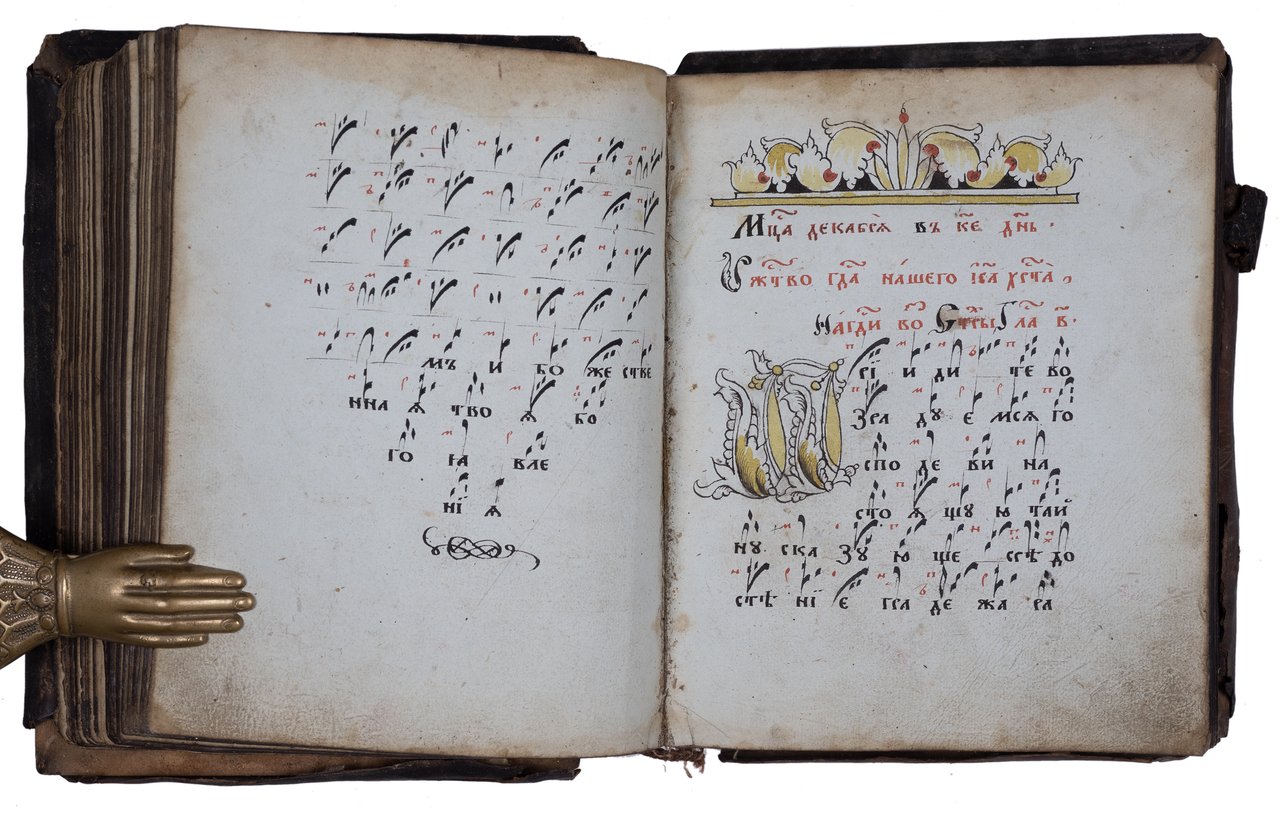 мъ и бо же стве
нна ѧ тво ѧ бо
го ꙗ вле
нї ѧ
Мцⷭ҇а декабрѧ въ к҃е дн҃ь ·
жⷭ҇тво гдⷭ҇а на́шего і҆с҃а хрⷭ҇та̀ ,
На́ гдⷭ҇и во Гла в҃ ·
рїи и ди те во
зра ду е мсѧ го
спо де ви на
сто ѧ щꙋ ю таи
нꙋ ска зꙋ ю ще срѣ до
стѣ нї е гра де жа ра